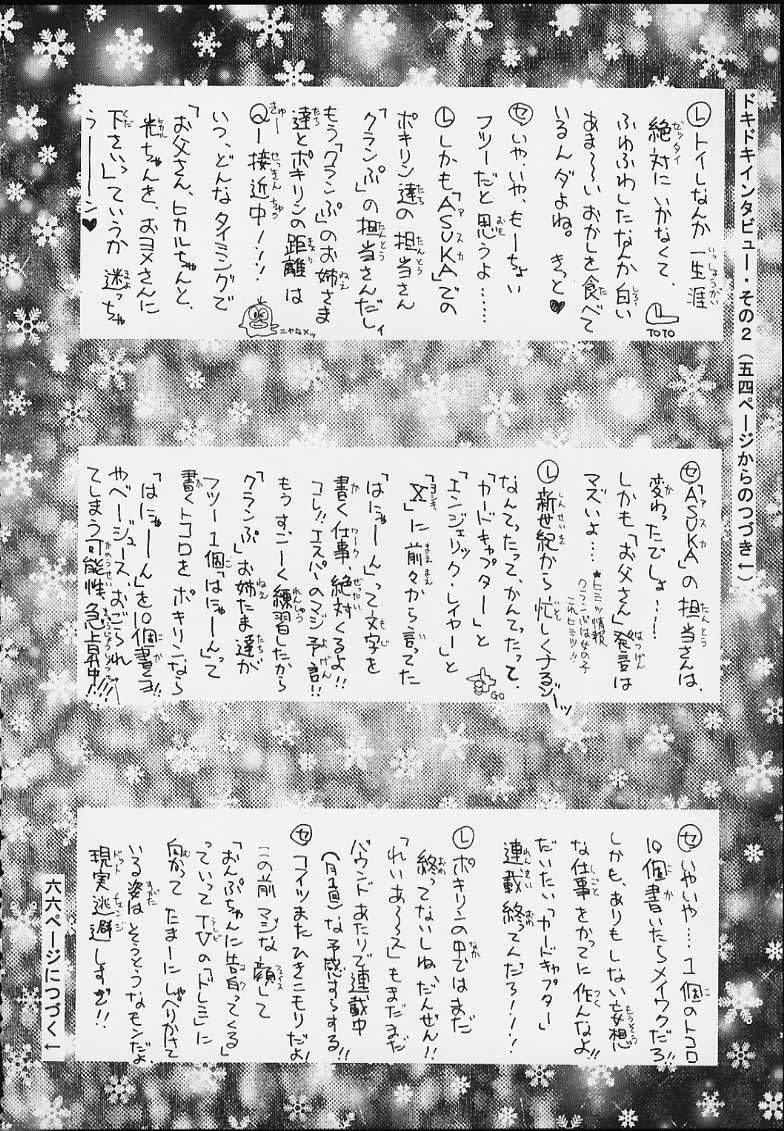 ドキドキインタビュー・その2（五四ページからのつづき↓）
Ⓛトイしなんか一生涯
絶対にいかなくて、
ふわふわしたなんか白い
あま〜〜いおかしを食べて
いるんダよね。きっと♥
TOTO
㋝いや、いや、もーちょい
フツーだと思うよ……
Ⓛしかも「ASUKA」での
ポキリン達の担当さん
「クランぷ」の担当さんだしィ
もう「クランぷ」のお姉さま
達とポキリンの距離は
Q一接近中！！！
ニャロメッ
いつ、どんなタイミングで
「お父さん、ヒカルちゃんと、
光ちゃんを、おヨメさんに
下さいっ」ていうか迷っちゃ
うーーーン♥
㋝「ASUKA」の担当さんは、
変わったでしょ……
しかも「お父さん」発言は
マズいよ…
★ヒミツ情報
クランぷは女の子
これヒミツ!!
Ⓛ新世紀から忙しくするゾーッ
GO
なんてったってかんてったって、
「カードキャプター」と
「エンジェリック・レイヤー」と
「X」に前々から言ってた
「はにゃーん」って文字を
書く仕事、絶対くるよ!!
コレ!!エスパーのマジ予言!!
もぅすごーく練習したから
「クランぷ」お姉たま達が
フツー1個「はにゃーん」って
書くトコロをポキリンなら
「はにゃーん」を10個書くヨ!!
やべージュース、おごられ
てしまう可能性、急上昇中!!!
㋝いやいや…1個のトコロ
10個書いたらメイワクだろ!!
しかも、ありもしない妄想
な仕事をかってに作んなよ!!
だいたい「カードキャプター」
連載終ってんだろ！！！
Ⓛポキリンの中ではまだ
終ってないしね、だんぜん!!
「れいあ〜〜ス」もまだまだ
バウンドあたりで連載中
(月1回)な予感すらする!!
㋝コイツまたひきこもりだよ!
この前マジな顔して
「おんぷちゃんに告ってくる」
っていってTVの「ドレミ」に
向かってたまーにしゃべりかけて
いる姿はそうとうなモンだよ
現実逃避しすぎ!!
六六ページにつづく↓